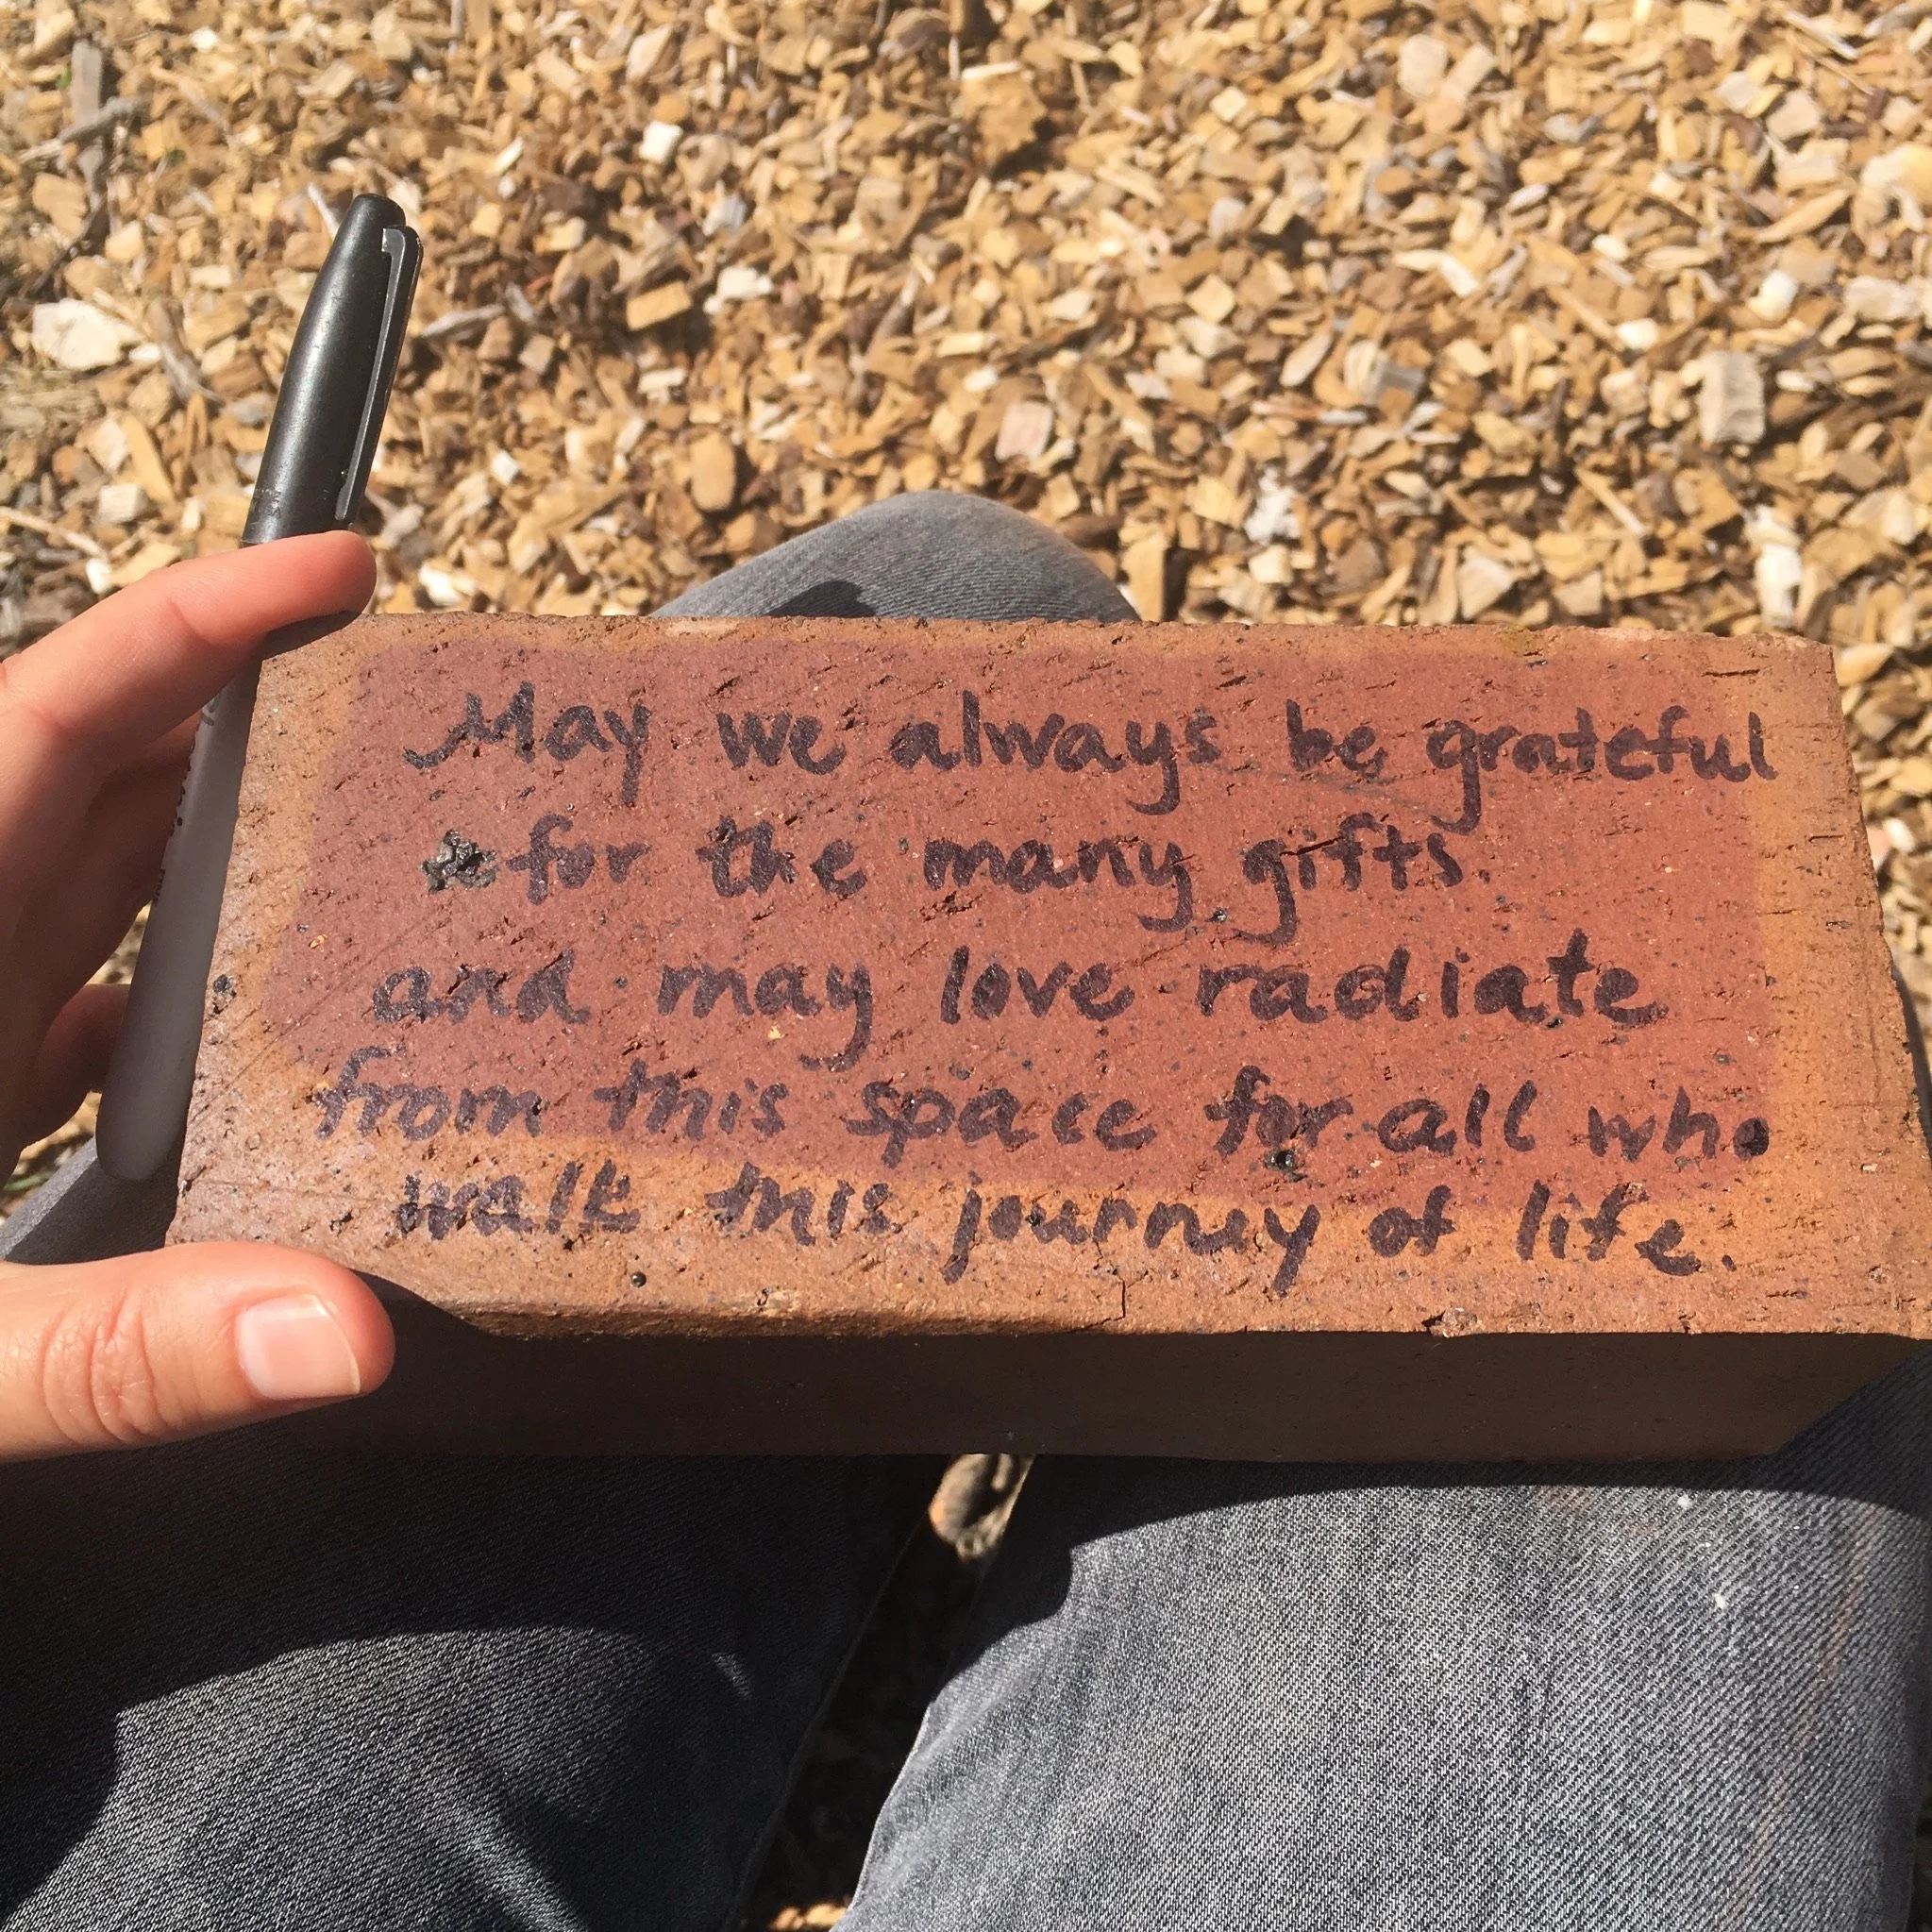 May we always be grateful
for the many gifts.
and may love radiate
from this space for all who
walk this journey of life.